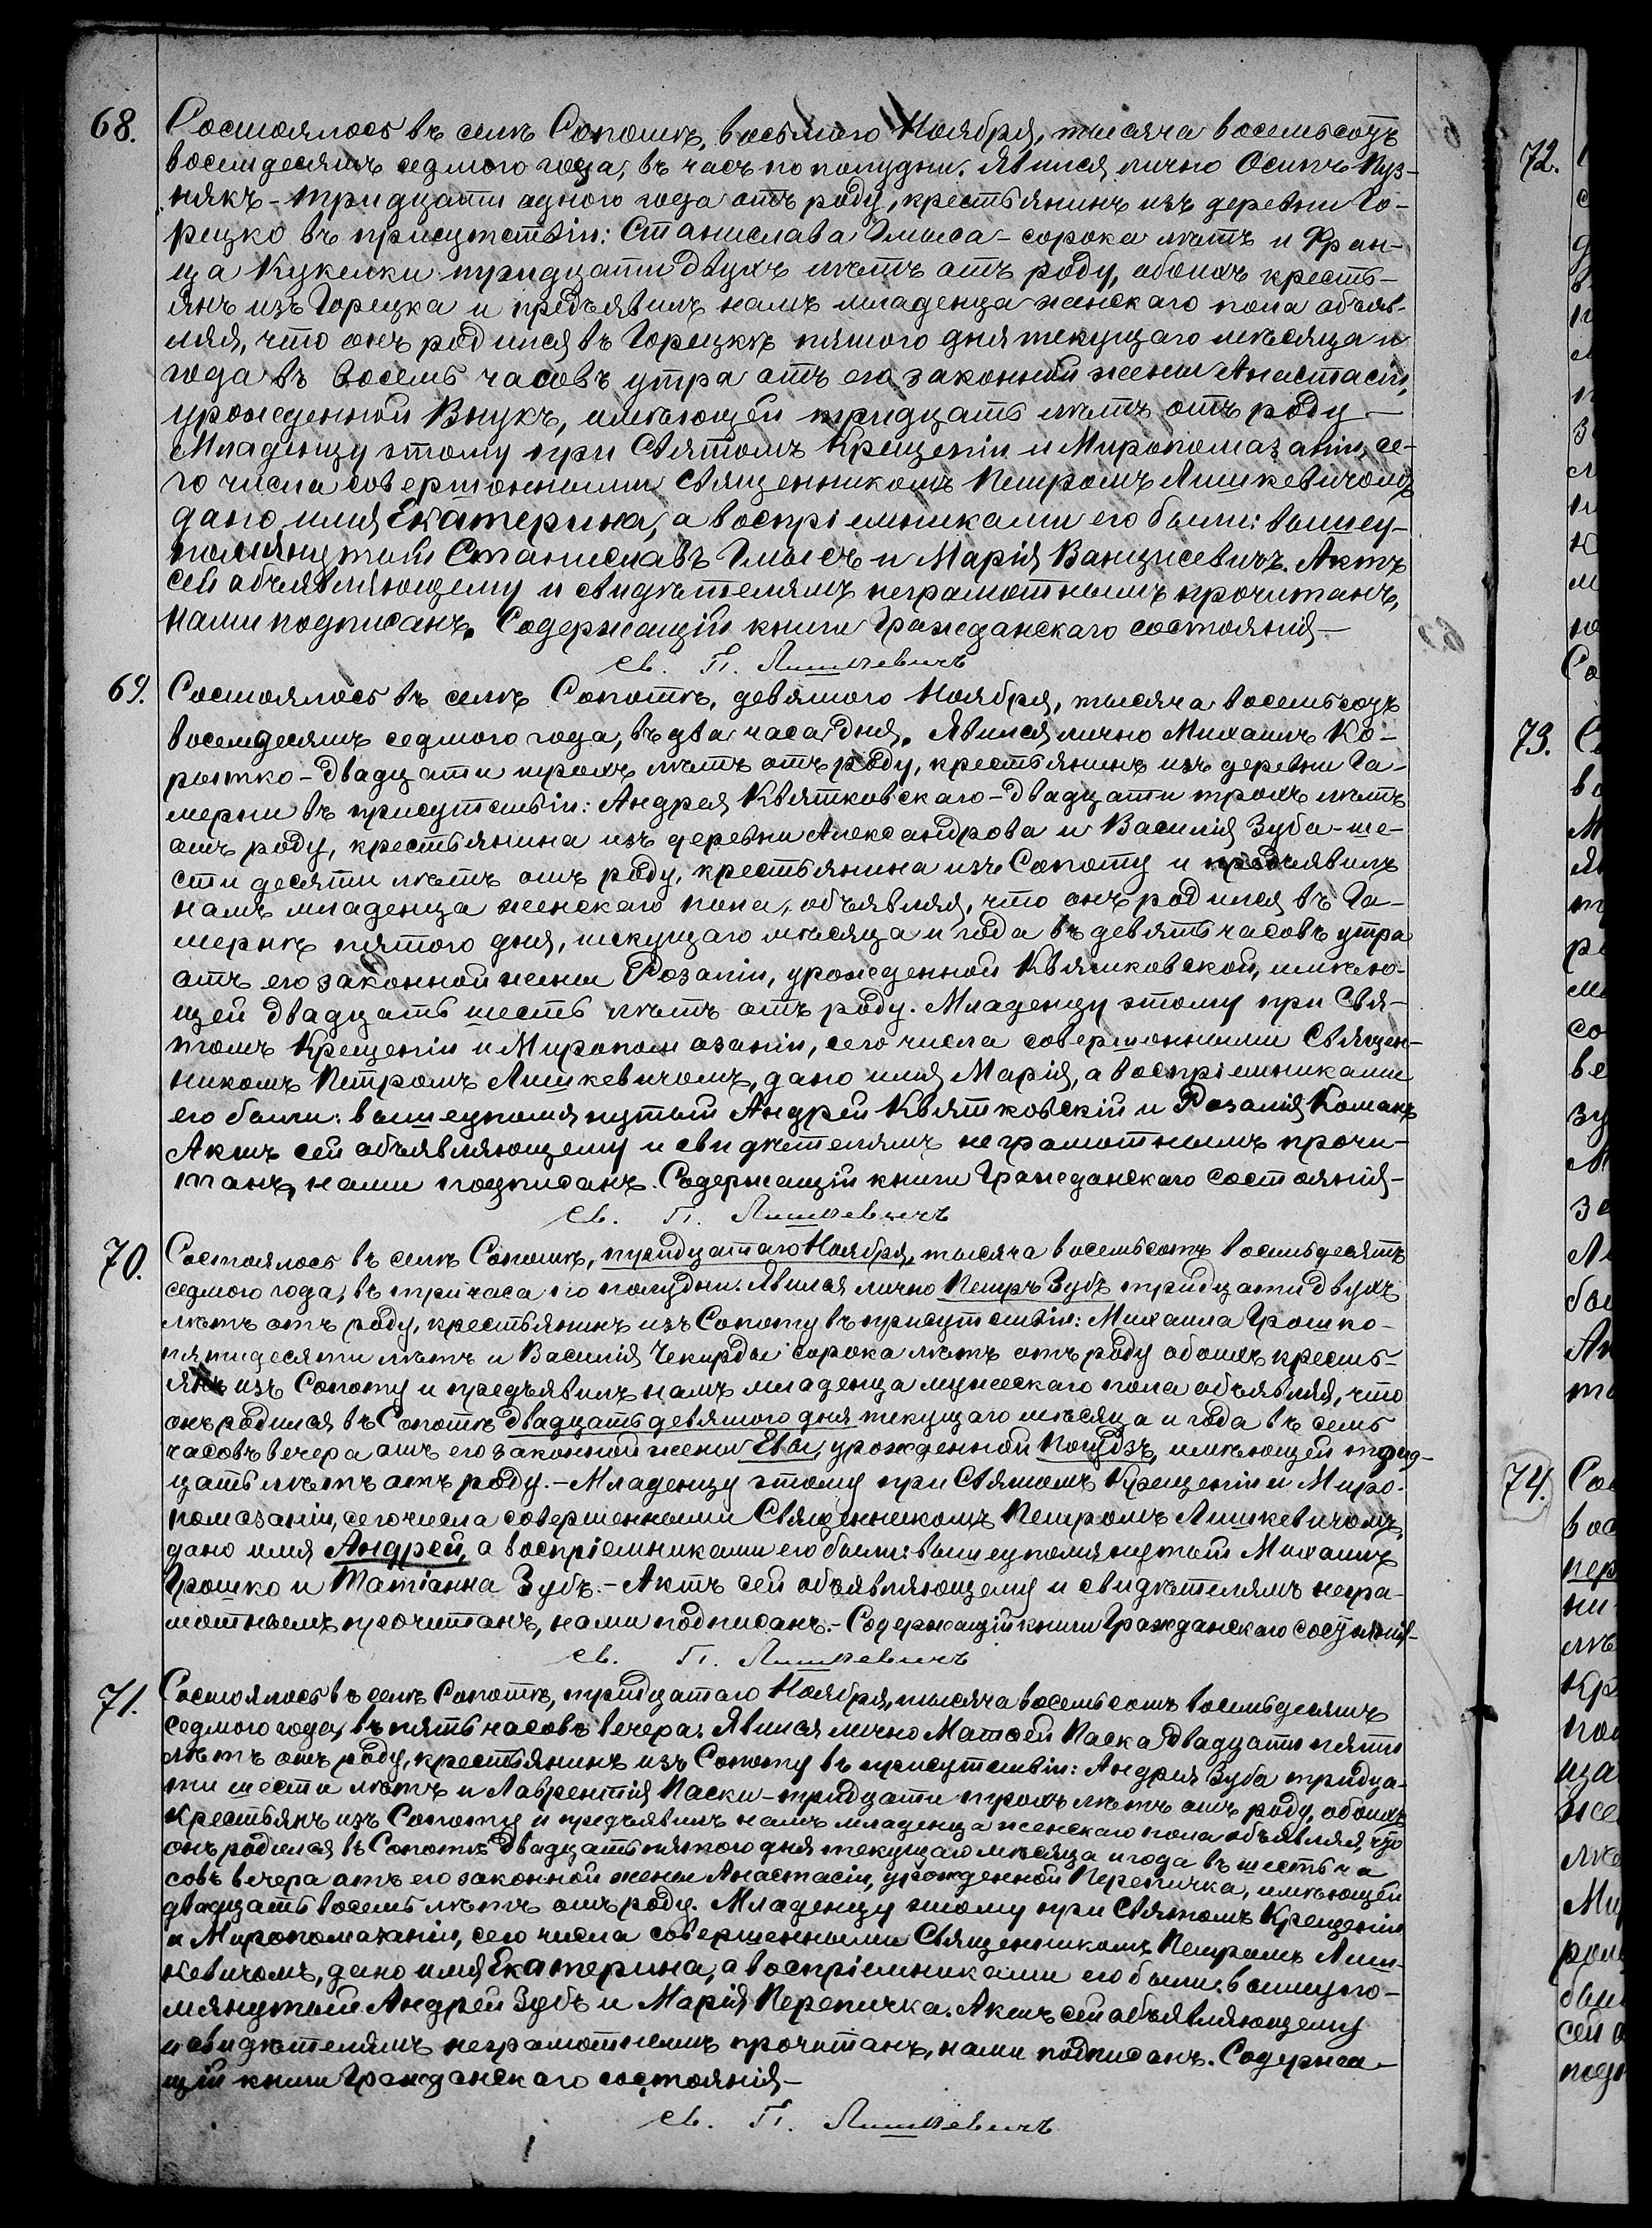 68.
Состоялось въ селѣ Сопотѣ, восьмого Ноября, тысяча восемьсотъ
восемдесятъ седмого года, въ часъ по полудни. Явился лично Осипъ Куз-
някъ - тридцати одного года отъ роду, крестьянинъ изъ деревни Го-
рецко въ присутствіи: Станислава Гмыса - сорока лѣтъ и Фран-
ца Кукелки тридцати двухъ лѣтъ отъ роду, обоихъ кресть-
янъ изъ Горецка и предъявилъ намъ младенца женскаго пола объяв-
ляя, что онъ родился въ Горецкѣ пятого дня текущаго мѣсяца и
года въ восемь часовъ утра отъ его законной жены Анастасіи,
урожденной Внукъ, имѣющей тридцать лѣтъ отъ роду -
Младенцу этому при Святомъ Крещеніи и Миропомазаніи, се-
го числа совершонными Священникомъ Петромъ Ляшкевичомъ
дано имя Екатерина, а воспріемниками его были: вышеу-
помянутый Станиславъ Гмысъ и Марія Ванцисевичъ. Актъ
сей объявляющему и свидѣтелямъ неграмотнымъ прочитанъ,
нами подписанъ. Содержащій книги Гражданскаго состоянія -
св. П. Ляшкевичъ
69.
Состоялось въ селѣ Сопотѣ, девятого Ноября, тысяча восемьсотъ
восемдесятъ седмого года, въ два часа дня. Явился лично Михаилъ Ко-
рытко - двадцати трохъ лѣтъ отъ роду, крестьянинъ изъ деревни Га-
мерни въ присутствіи: Андрея Квятковскаго - двадцати трохъ лѣтъ
отъ роду, крестьянина изъ деревни Александрова и Василія Зуба - ше-
сти десяти лѣтъ отъ роду, крестьянина изъ Сопоту и предъявилъ
намъ младенца женскаго пола, объявляя, что онъ родился въ Га-
мернѣ пятого дня, текущаго мѣсяца и года въ девять часовъ утра
отъ его законной жены Розаліи, урожденной Квятковской, имѣю-
щей двадцать шесть лѣтъ отъ роду. Младенцу этому при Свя-
томъ Крещеніи и Миропомазаніи, сего числа совершонными Священ-
никомъ Петромъ Ляшкевичомъ, дано имя Марія, а воспріемниками
его были: вышеупомянутый Андрей Квятковскій и Розалія Команъ
Актъ сей объявляющему и свидѣтелямъ неграмотнымъ прочи-
танъ, нами подписанъ. Содержащій книги Гражданскаго состоянія -
св. П. Ляшкевичъ
70.
Состоялось въ селѣ Сопотѣ, тридцатаго Ноября, тысяча восемьсотъ восемьдесятъ
седмого года, въ три часа по полудни. Явился лично Петръ Зубъ тридцати двухъ
лѣтъ отъ роду, крестьянинъ изъ Сопоту въ присутствіи: Михаила Грошко -
пятидесяти лѣтъ и Василія Чекирды сорока лѣтъ отъ роду обоихъ кресть-
янъ изъ Сопоту и предъявилъ намъ младенца мужескаго пола объявляя, что
онъ родился въ Сопотѣ двадцать девятого дня текущаго мѣсяца и года въ семь
часовъ вечера отъ его законной жены Евы, урожденной Поцудзъ, имѣющей трид-
цать лѣтъ отъ роду. - Младенцу этому при Святомъ Крещеніи и Миро-
помазаніи, сего числа совершенными Священникомъ Петромъ Ляшкевичомъ,
дано имя Андрей, а воспріемниками его были: вышеупомянутый Михаилъ
Грошко и Татіанна Зубъ. - Актъ сей объявляющему и свидѣтелямъ негра-
мотнымъ прочитанъ, нами подписанъ. - Содержащій книги Гражданскаго состоянія -
св. П. Ляшкевичъ
71.
Состоялось въ селѣ Сопотѣ, тридцатаго Ноября, тысяча восемьсотъ восемьдесятъ
седмого года, въ пять часовъ вечера. Явился лично Матѳей Паска двадцати пяти
лѣтъ отъ роду, крестьянинъ изъ Сопоту въ присутствіи: Андрея Зуба тридца-
ти шести лѣтъ и Лаврентія Паски - тридцати трохъ лѣтъ отъ роду, обоихъ
крестьянъ изъ Сопоту и предъявилъ намъ младенца женскаго пола объявляя, что
онъ родился въ Сопотѣ двадцать пятого дня текущаго мѣсяца и года въ шесть ча
совъ вечера отъ его законной жены Анастасіи, урожденной Перепичка, имѣющей
двадцать восемь лѣтъ отъ роду. Младенцу этому при Святомъ Крещеніи
и Миропомазаніи, сего числа совершенными Священникомъ Петромъ Ляш-
кевичомъ, дано имя Екатерина, а воспріемниками его были: вышеупо-
мянутый Андрей Зубъ и Марія Перепичка. Актъ сей объявляющему
и свидѣтелямъ неграмотнымъ прочитанъ, нами подписанъ. Содержа-
щій книги Гражданскаго состоянія -
св. П. Ляшкевичъ
72.
73.
74.